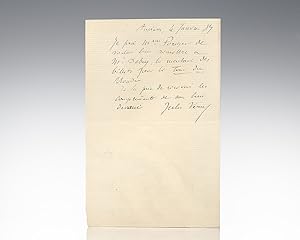 Amiens 4 Janvier 89
Je prie Mme Pascal de
vouloir bien remettre à
Mr le montant des
billets pour le Tour du
Monde
Je la prie de recevoir les
compliments de son bien
dévoué Jules Verne